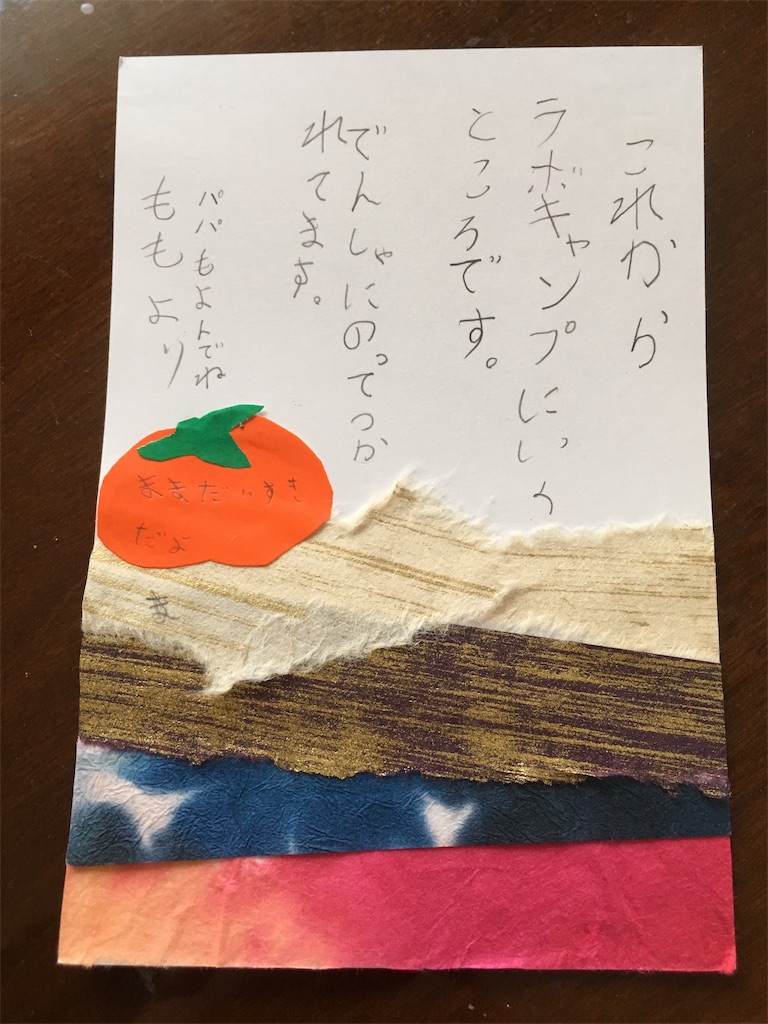 これから
ラボキャンプにいく
ところです。
でんしゃにのってつか
れてます。
パパもよんでね
ももより
ままだいすき
だよ
ま